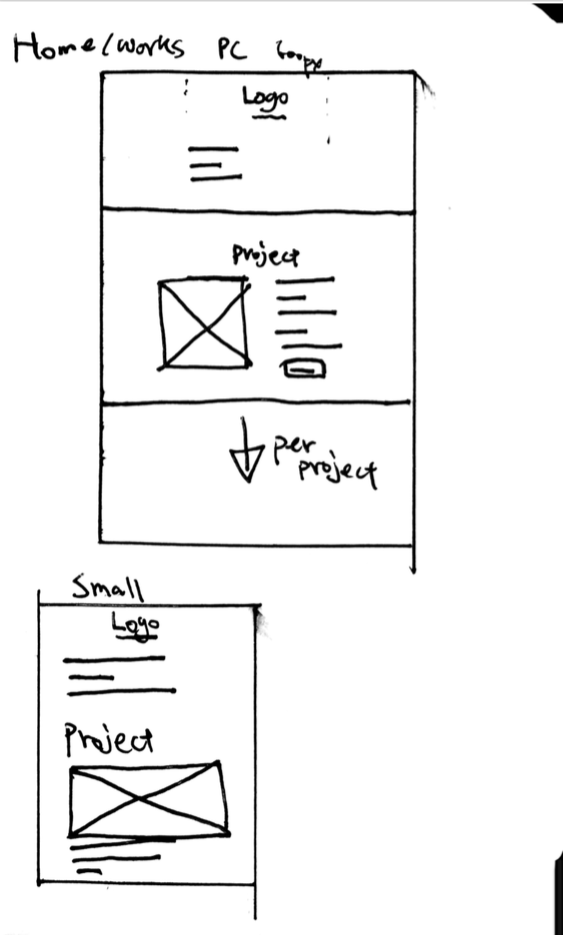 Home/works PC
Logo
Project
per
project
Small
Logo
Project